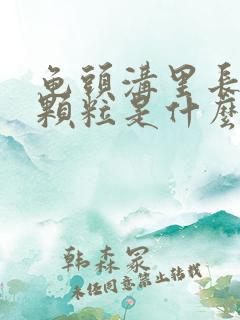 龟頭溝里長
顆粒是什麼
韩森冢
未经同意禁止转载